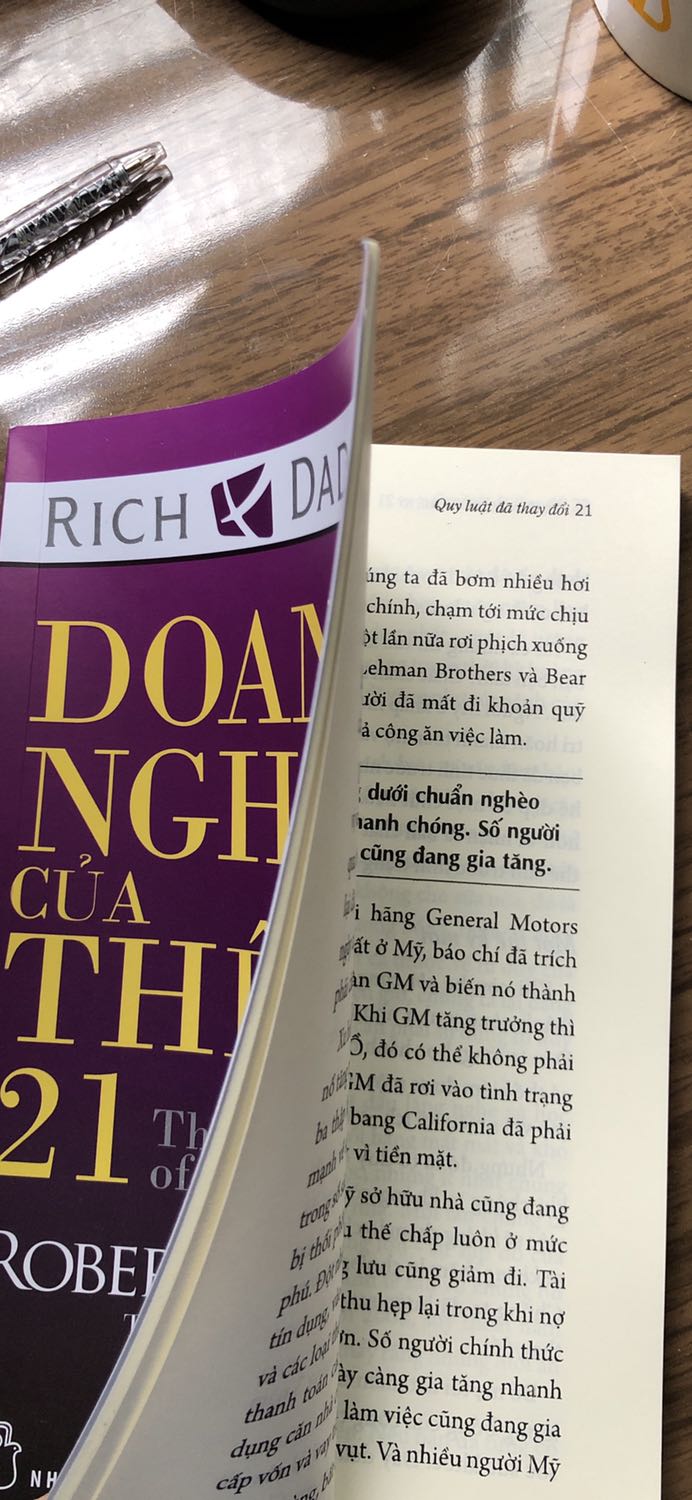 RICH DAD
DOAN
NGH
CỦA
THẾ
21 Th
of
ROBER
T
NH
Quy luật đã thay đổi 21
úng ta đã bơm nhiều hơi
chính, chạm tới mức chịu
ột lần nữa rơi phịch xuống
Lehman Brothers và Bear
ười đã mất đi khoản quỹ
ả công ăn việc làm.
dưới chuẩn nghèo
hanh chóng. Số người
cũng đang gia tăng.
i hãng General Motors
ất ở Mỹ, báo chí đã trích
àn GM và biến nó thành
Khi GM tăng trưởng thì
đó có thể không phải
GM đã rơi vào tình trạng
bang California đã phải
vì tiền mặt.
ỹ sở hữu nhà cũng đang
thế chấp luôn ở mức
lưu cũng giảm đi. Tài
thu hẹp lại trong khi nợ
ơn. Số người chính thức
ày càng gia tăng nhanh
làm việc cũng đang gia
vụt. Và nhiều người Mỹ
nổ tăng
ba thập
mạnh
trong số
bị thổi
phú. Đột
tín dụng,
và các loại
thanh toán
dụng căn nhà
cấp vốn và vay